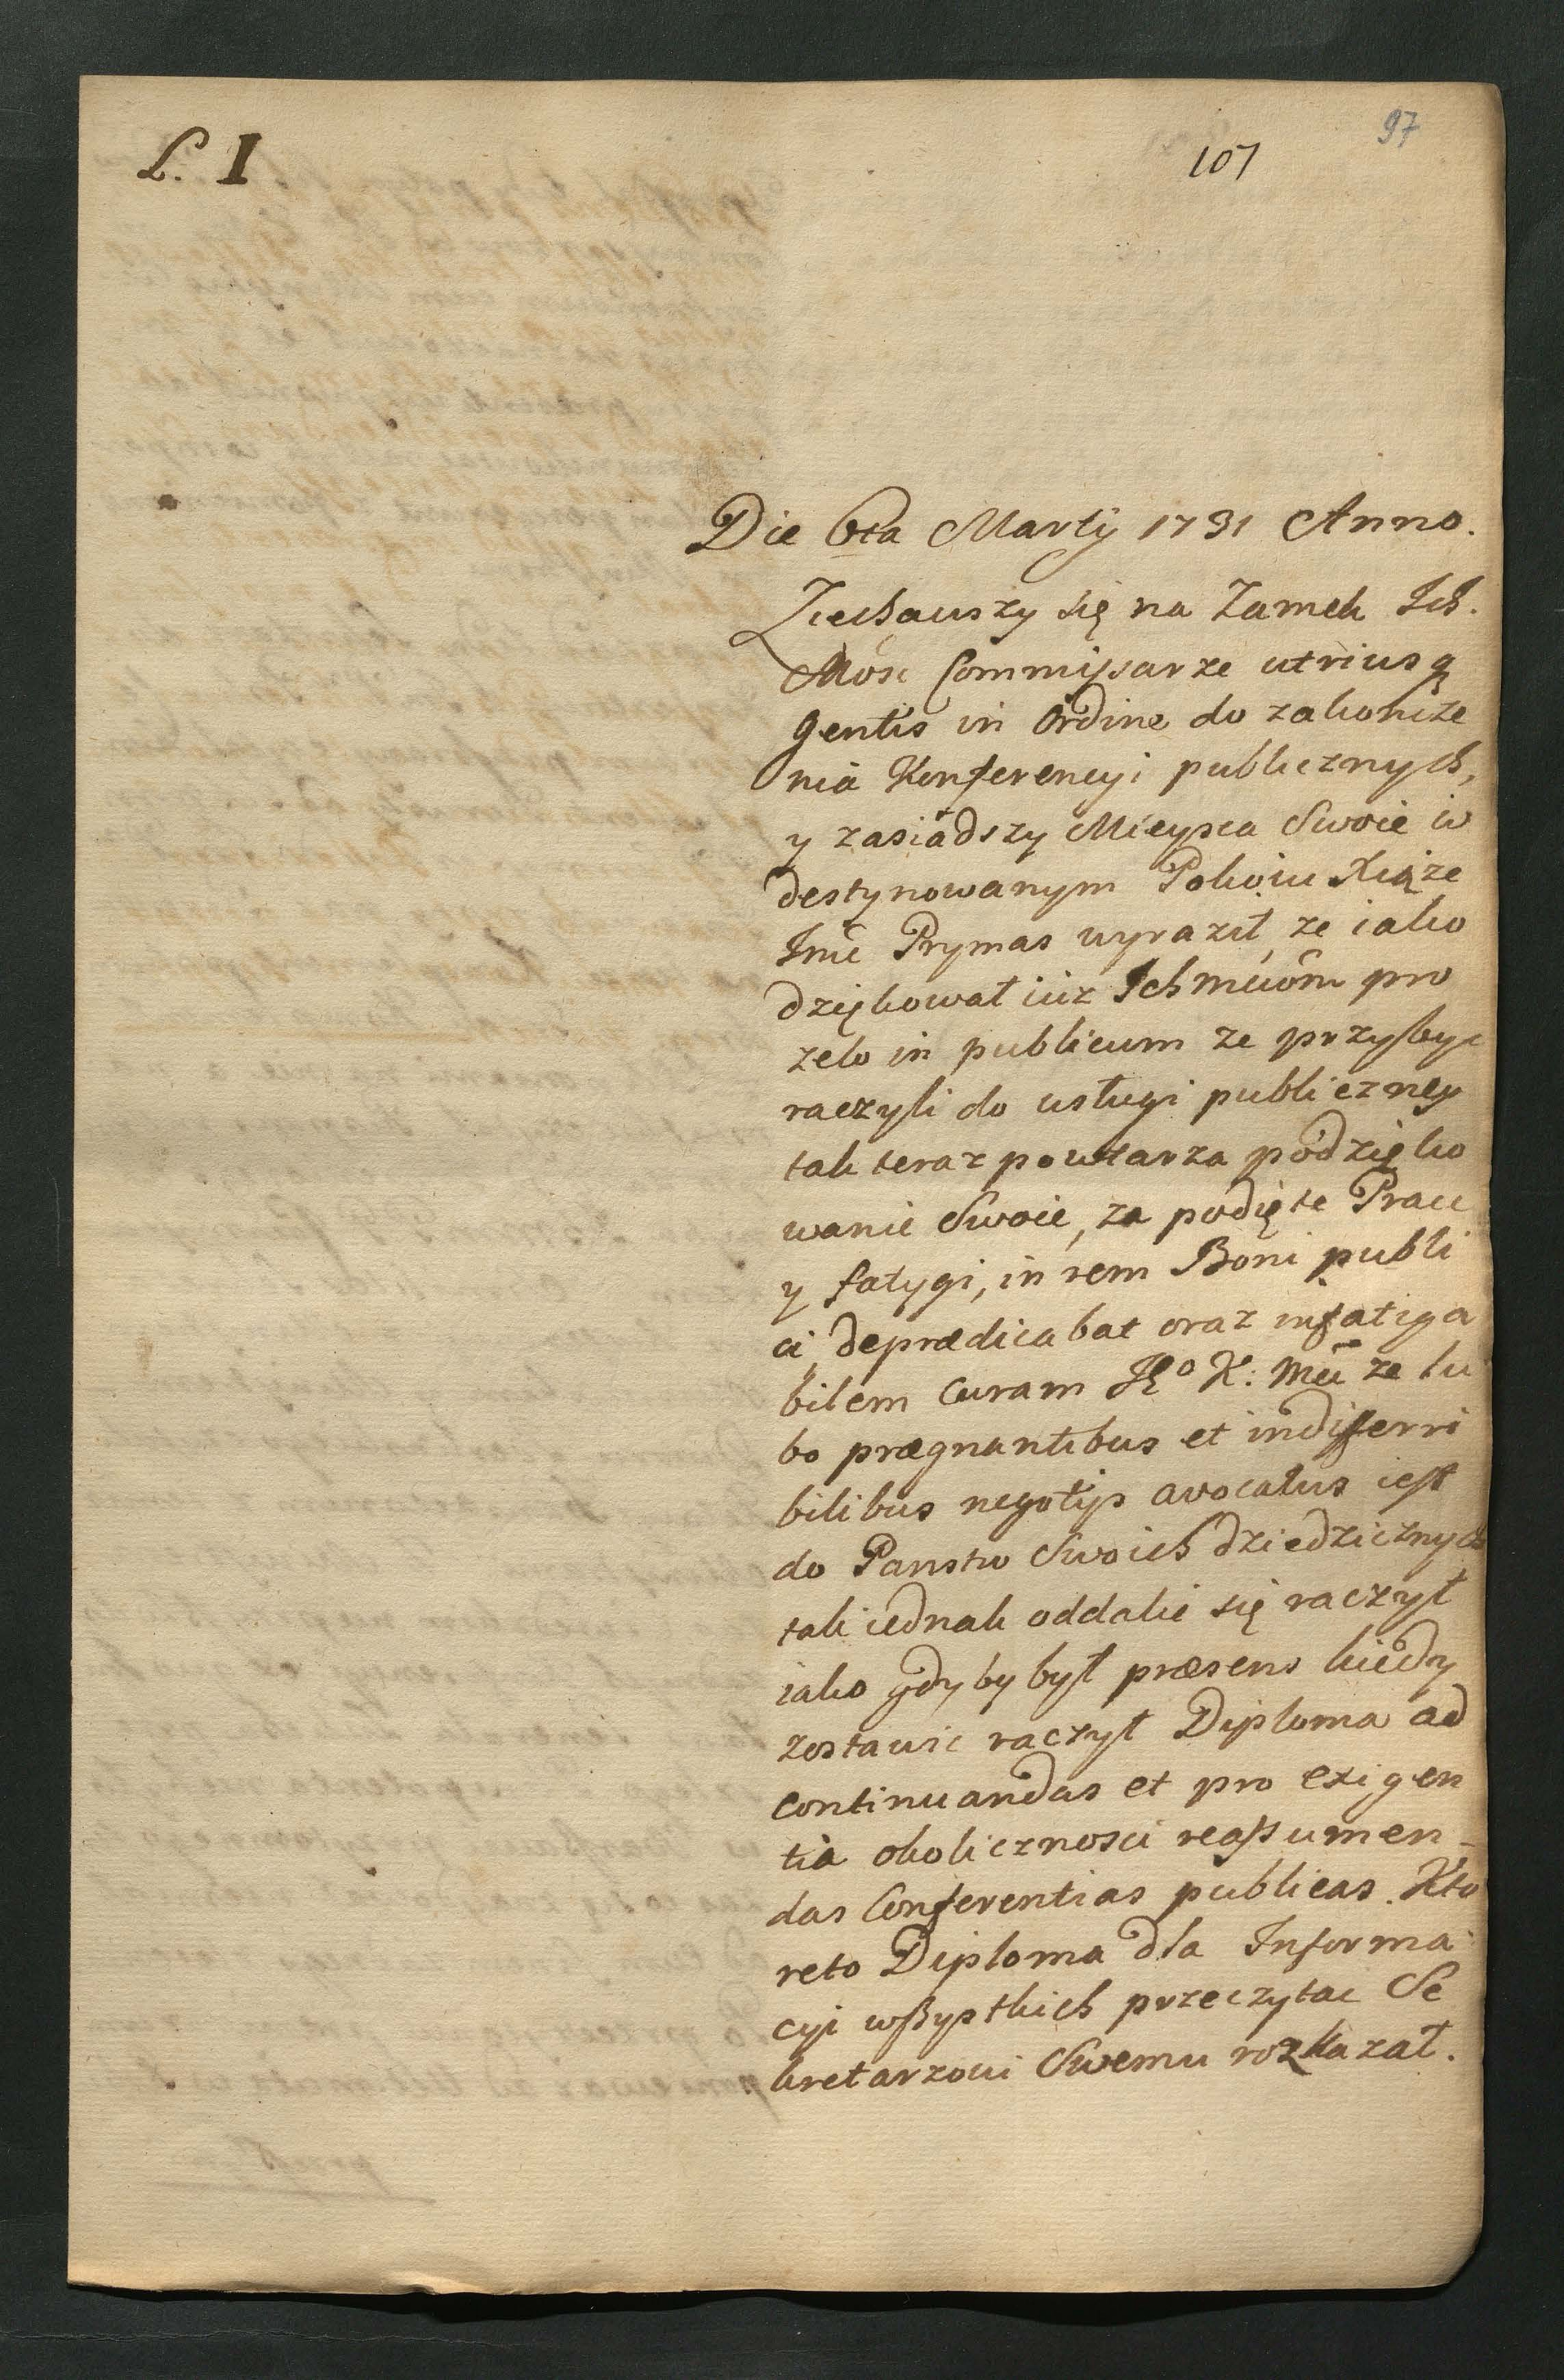 L. I
107
97
Die 6ta Martij 1731 Anno.
Ziechauszy się na Zamek Ich.
Mość Commissarze utriusq
Gentis in Ordine do zakończe
nia Konferencyi publicznych,
y zasiadszy Mieysca Swoie w
destynowanym Pokoiu Xiąże
Jmć Prymas wyraził, ze iako
dziękował iuz Ichmciom pro
zelo in publicum ze przybyc
raczyli do usługi publiczney
tak teraz powtarza podzięko
wanie Swoie, za podięte Prace
y fatygi, in rem Boni publi
ci, deprædicabat oraz infatiga
bilem curam JKo K: Mci ze lu
bo prægnantibus et indifferri
bilibus negotijs avocatus iest
do Panstw Swoich dziedzicznych
tak iednak oddalić się raczył
iako gdyby był præsens kiedy
zostawic raczył Diploma ad
continuandas et pro exigen
tia okolicznosci reassumen_
das Conferentias publicas. Kto
reto Diploma dla Informa
cyi wszystkich przeczytac Se
kretarzowi Swemu rozkazał.